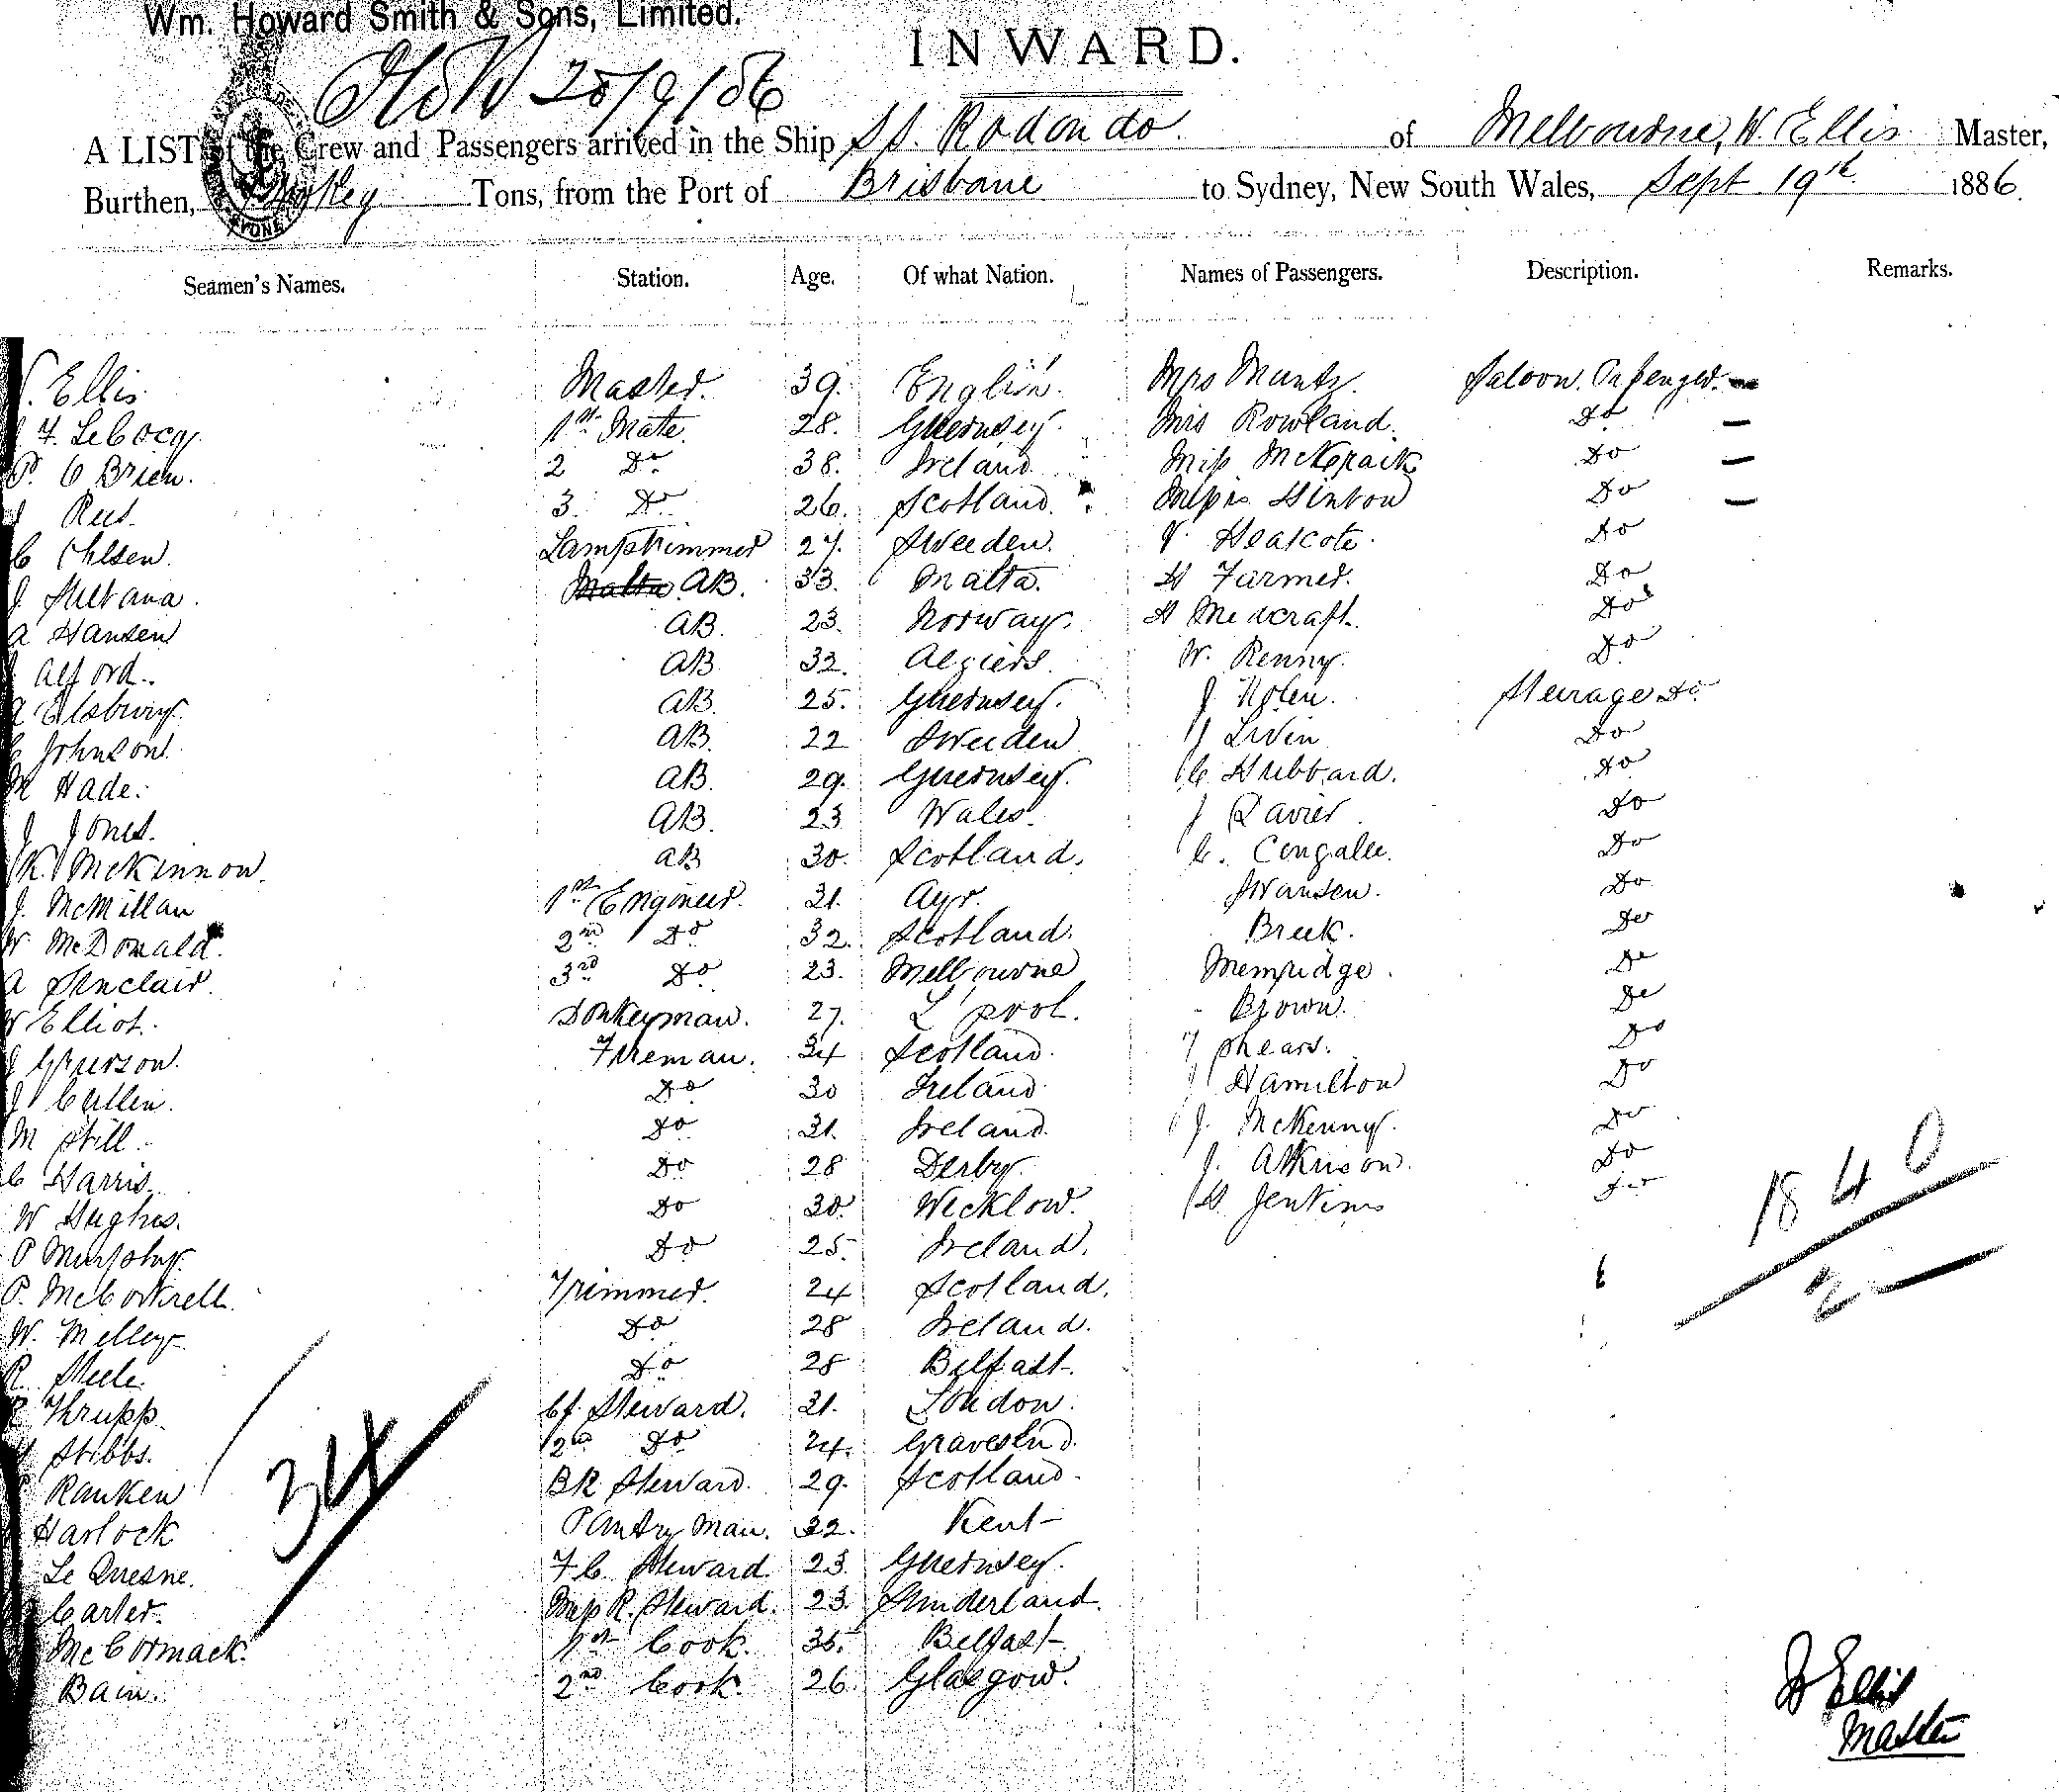 Wm. Howard Smith & Sons, Limited.
INWARD.
20/9/86
A LIST of the Crew and Passengers arrived in the Ship SS. Rodondo. of Melbourne, W. Ellis Master,
Burthen, Tons, from the Port of Brisbane to Sydney, New South Wales, Sept 19th 1886.
Seamen's Names. Station. Age. Of what Nation. Names of Passengers. Description. Remarks.
Ellis Master. 39. English. Mrs Muntz. Saloon. Passenger.
F. LeCocq. 1st Mate. 28. Guernsey. Rowland. Do
P. O Brien. 2 Do 38. Ireland Miss Do
3. Do 26. Scotland. Hinton Do
C Ohlsen. Lamptrimmer 27. Sweeden. Heascote. Do
J. Malta AB. 33. Malta. H Farmer. Do
A Hansen AB. 23. Norway. H Medcraft. Do
Alford. AB 32. Algiers. W. Renny. Do
A Elsbury. AB. 25. Guernsey. J. Steerage Do.
C Johnson. AB. 22 Sweeden Do
M Hade. AB. 29. Guernsey. C. Hubbard. Do
J Jones. AB. 23 Wales. J Do
K. McKinnon. AB 30. Scotland. C. Do
J. McMillan 1st Engineer. 31. Ayr. Swansen. Do
W. McDonald. 2nd Do 32. Scotland. Do
A Sinclair. 3rd Do 23. Melbourne Do
W Elliot. Donkeyman. 27. L'pool. Brown. Do
J Grierson. Fireman. 34 Scotland. Do
J Cullen. Do 30 Ireland J Hamilton Do
M Still. Do 31. Ireland J. McKenny. Do
C Harris. Do 28 Derby. J. Atkinson. Do
W Hughes. Do 30. Wicklow. H. Jenkins Do
P Murphy. Do 25. Ireland.
P. McCorkrell. Trimmer. 24 Scotland.
W. Melley Do 28 Ireland.
R. Steele. Do 28 Belfast.
Thrupp Cf. Steward. 31. London.
Stibbs. 2nd Do 24. Gravesend.
Ranken BR Steward. 29. Scotland.
Harlock Pantry Man. 32. Kent
Le Quesne. F C. Steward 23. Guernsey.
Carter. R. Steward. 23. Sunderland.
McCormack. 1st Cook. 35. Belfast.
Bain. 2nd Cook. 26. Glasgow.
34
1840
2
W Ellis
Master